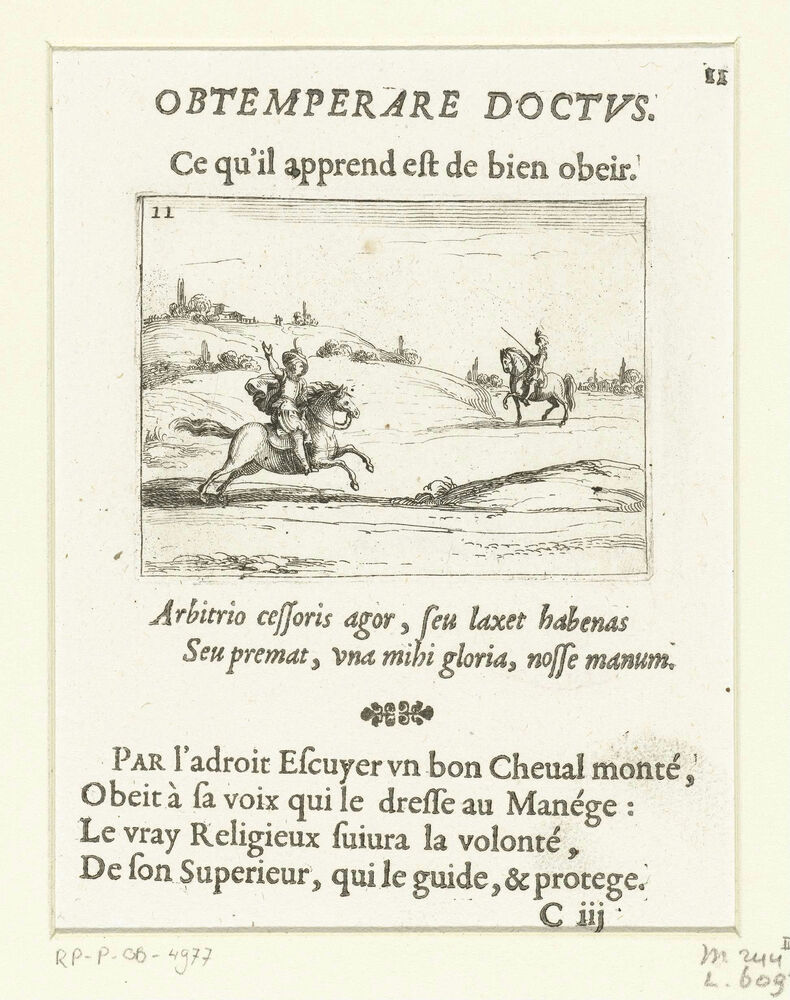 11
OBTEMPERARE DOCTVS.
Ce qu'il apprend eſt de bien obeir.
11
Arbitrio ceſſoris agor, ſeu laxet habenas
Seu premat, vna mihi gloria, noſſe manum.
PAR l'adroit Eſcuyer vn bon Cheual monté,
Obeit à ſa voix qui le dreſſe au Manége :
Le vray Religieux ſuiura la volonté,
De ſon Superieur, qui le guide, & protege.
C iij
RP-P-OB-4977
L. 609